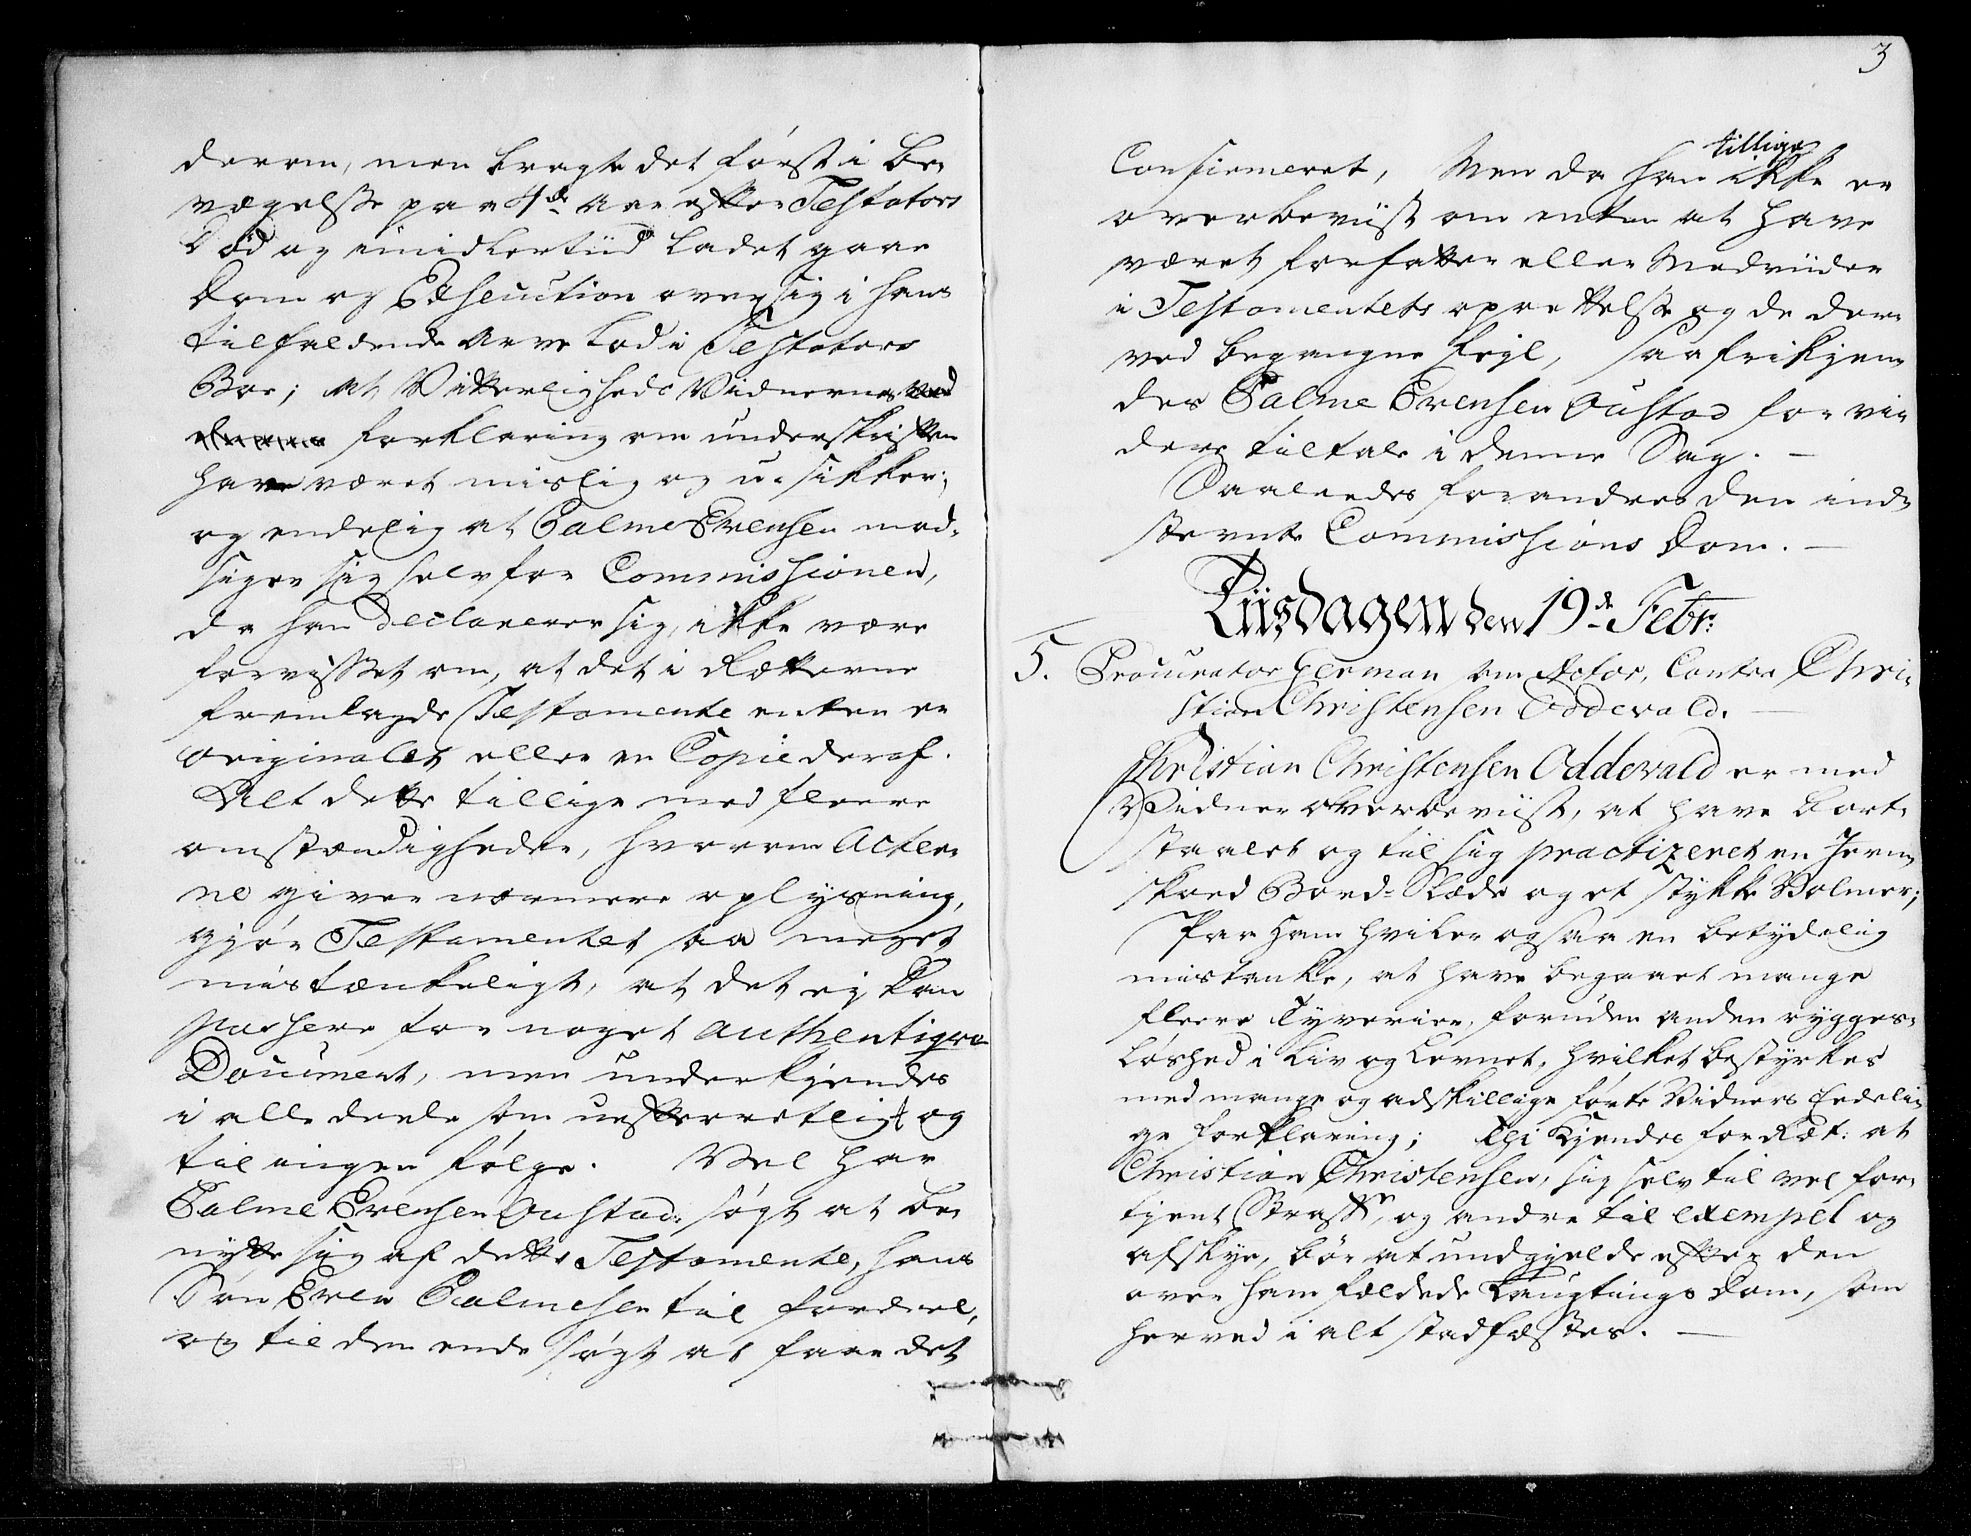 derom, men bragte det først i be-
vægelse paa 4de Aar efter Testators
Død og imidlertiid ladet gaae
Dom og Exsecution over sig i hans
tilfaldende Arve Lod i Testators
Boe; At Vitterligheds Vidnernes
forklaring om underskriften
have været mislig og u-sikker;
og endelig at Palme Evensen mod-
siger sig selv for Commissionen,
da han Declarerer sig, ikke være
forvisset om, at det i Rætterne
fremlagde Testamente enten er
originalet eller en Copie deraf.
Alt dette tillige med fleere
omstændigheder, hvorom Acter-
ne giver nærmere oplysning,
gjør Testamentet saa meget
mistænkeligt, at det ej kan
passere for noget authentiqve
Document, men underkjendes
i alle deele som uefterretligt og
til ingen følge. Vel har
Palme Evensen Oustad søgt at be-
nytte sig af dette Testamente, hans
Søn Even Palmesen til fordeel,
og til den ende søgt at faae det
3
tillige
Confirmeret, Men da han ikke er
overbeviist om enten at have
været forfatter eller Medviider
i Testamentets oprettelse og de der-
ved begangne Fejl, saa frikjen-
des Palme Evensen Oustad for vi-
dere tiltale i denne Sag. —
Saaledes forandres den ind-
stevnte Commissions Dom. —
Tiisdagen den 19de Febr:
5. Procurator Eerman om Actor, Contra Chri-
stian Christensen Oddevald. —
Christian Christensen Oddevald er med
Vidner overbeviist, at have bort-
staalet og til sig practizeret en Jern-
skoed Bord-Slæde og et stykke Volmer;
Paa ham hviler ogsaa en betydelig
mistanke, at have begaaet mange
fleere Tyverier, foruden anden rygges-
løshed i Liv og Levnet, hvilket bestyrkes
med mange og adskillige førte Vidners Eedeli-
ge forklaring; Thi kjendes for Ræt: at
Christian Christensen, sig selv til vel for-
tjent Straff, og andre til exempel og
afskye, bør at undgjelde efter den
over ham fældede Laugtings Dom, som
herved i alt stadfæstes. —